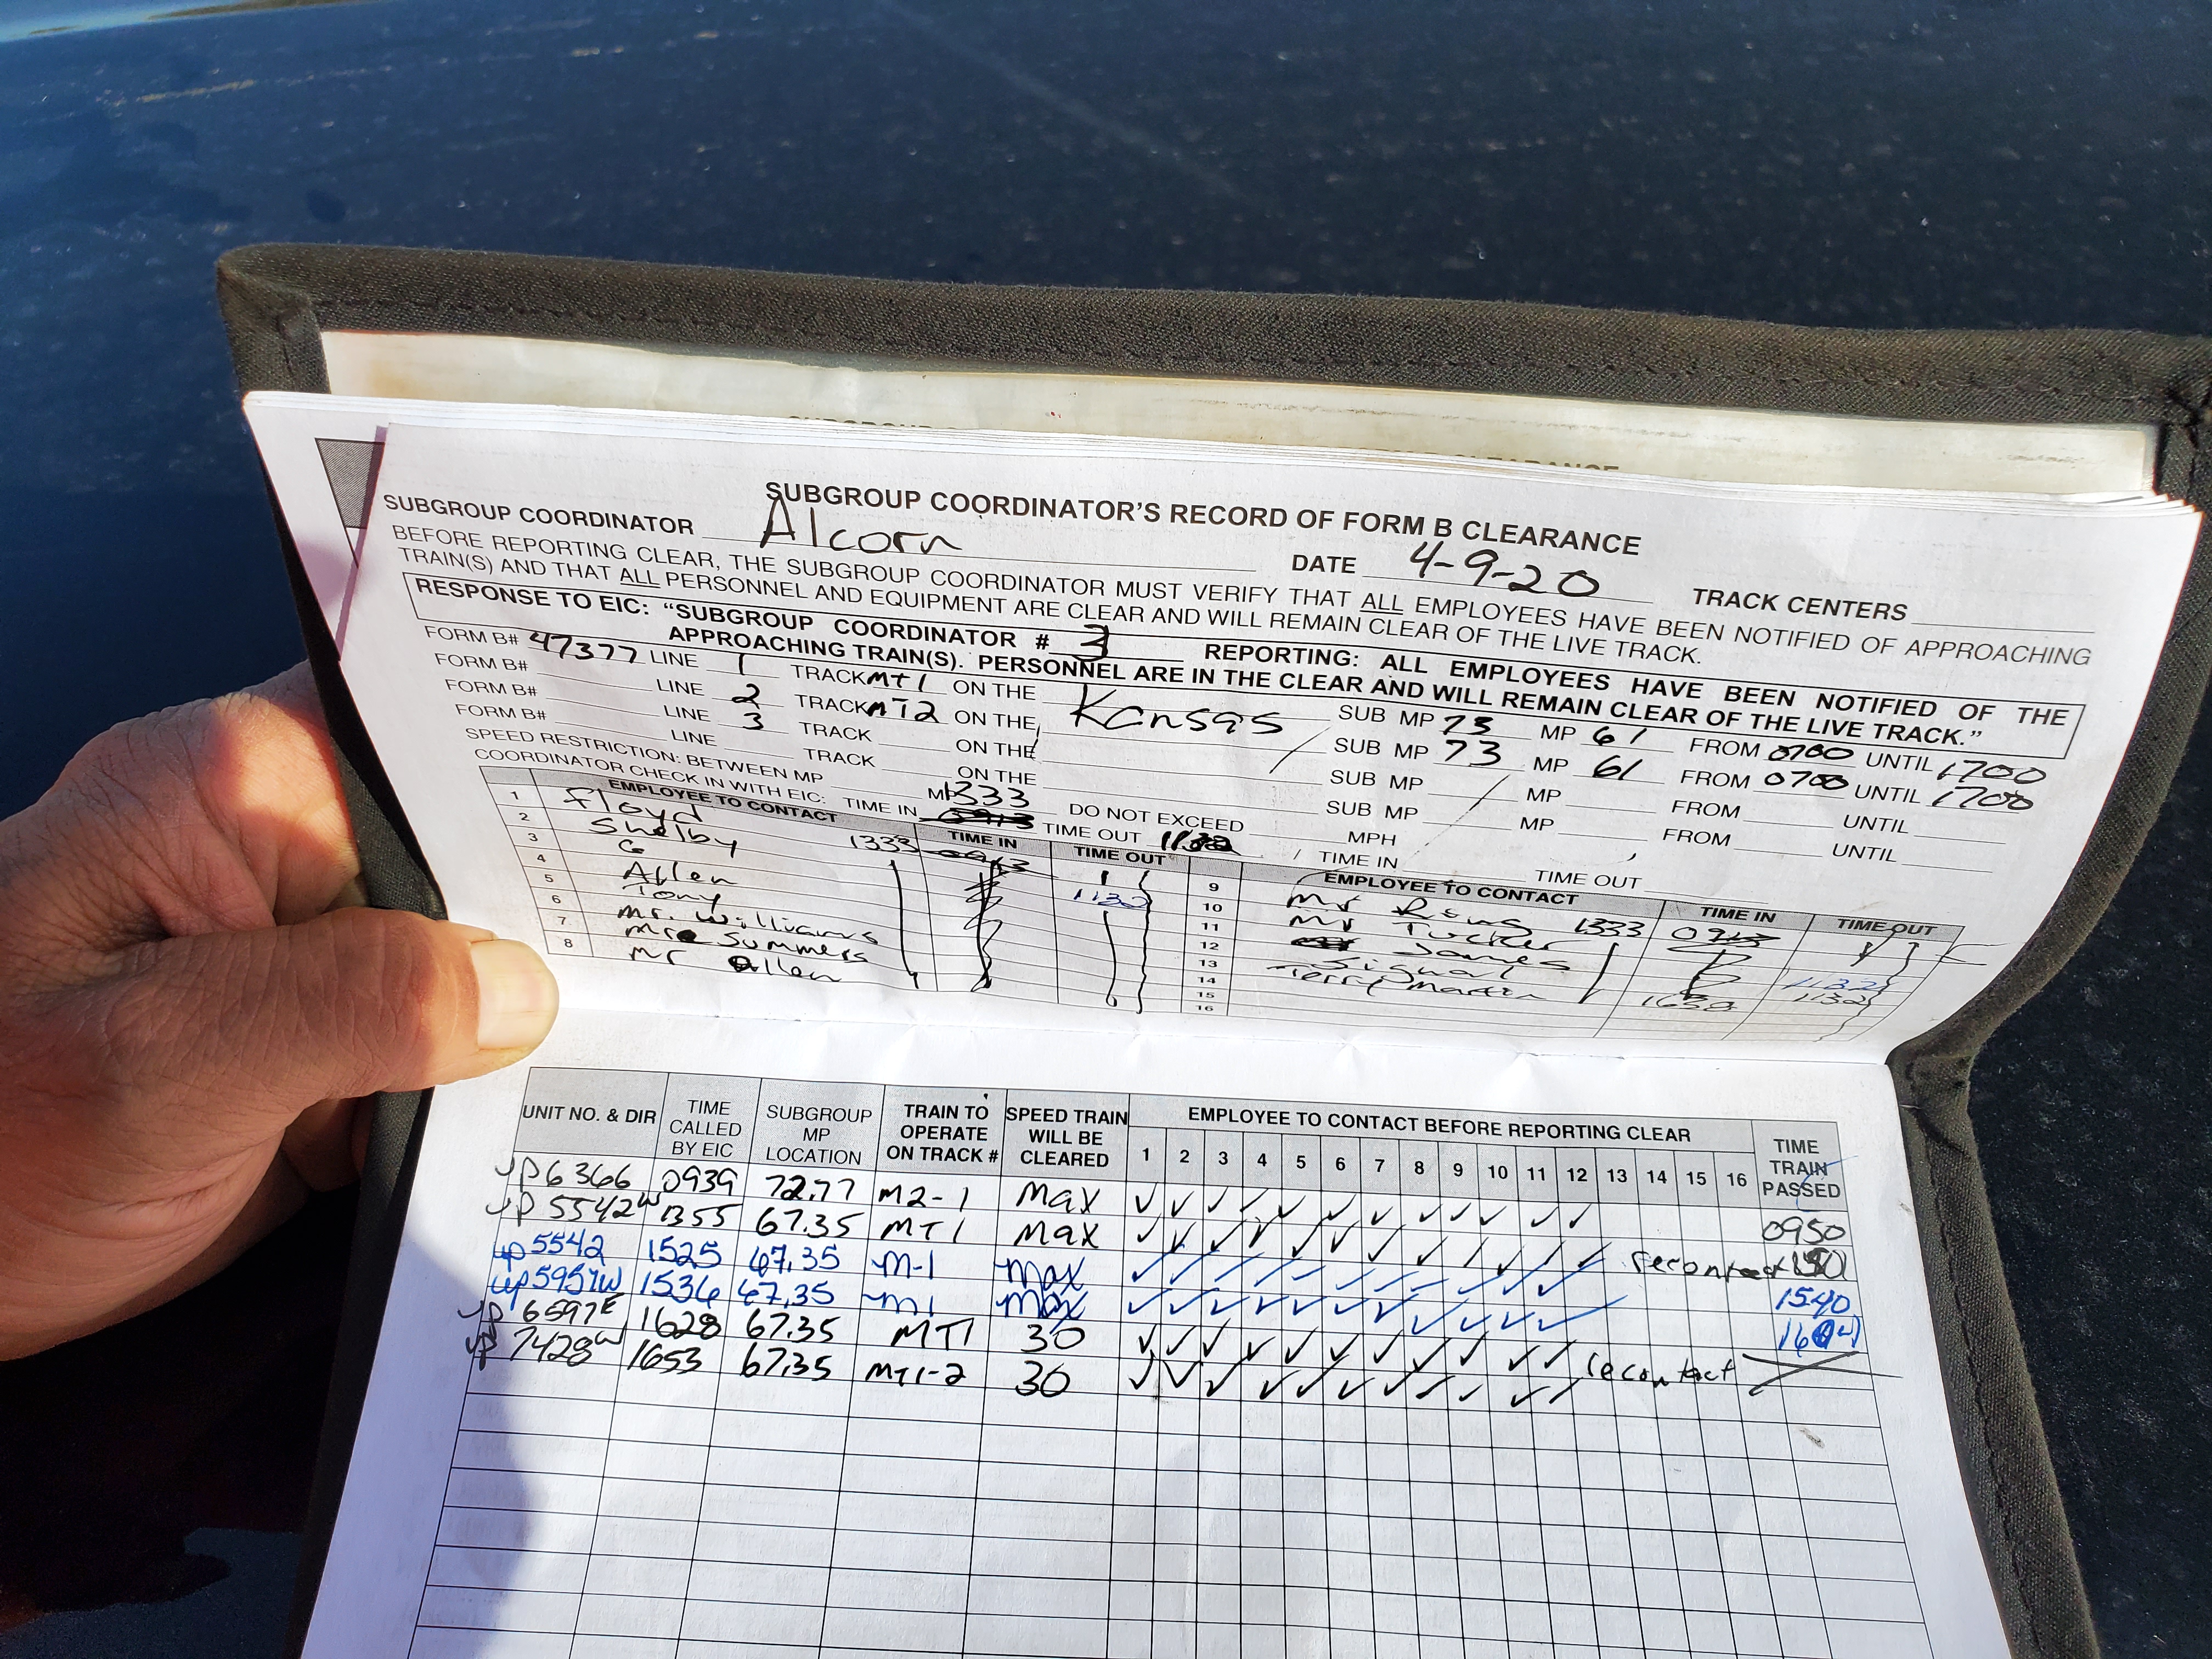 SUBGROUP COORDINATOR'S RECORD OF FORM B CLEARANCE
SUBGROUP COORDINATOR Alcorn DATE 4-9-20 TRACK CENTERS
BEFORE REPORTING CLEAR, THE SUBGROUP COORDINATOR MUST VERIFY THAT ALL EMPLOYEES HAVE BEEN NOTIFIED OF APPROACHING
TRAIN(S) AND THAT ALL PERSONNEL AND EQUIPMENT ARE CLEAR AND WILL REMAIN CLEAR OF THE LIVE TRACK.
RESPONSE TO EIC: "SUBGROUP COORDINATOR # 3 REPORTING: ALL EMPLOYEES HAVE BEEN NOTIFIED OF THE
APPROACHING TRAIN(S). PERSONNEL ARE IN THE CLEAR AND WILL REMAIN CLEAR OF THE LIVE TRACK."
FORM B# 47377 LINE 1 TRACK MT1 ON THE Kansas SUB MP 73 MP 61 FROM 0700 UNTIL 1700
FORM B# LINE 2 TRACK MT2 ON THE SUB MP 73 MP 61 FROM 0700 UNTIL 1700
FORM B# LINE 3 TRACK ON THE SUB MP MP FROM UNTIL
FORM B# LINE TRACK ON THE SUB MP MP FROM UNTIL
SPEED RESTRICTION: BETWEEN MP MP DO NOT EXCEED MPH
COORDINATOR CHECK IN WITH EIC: TIME IN 1333 0913 TIME OUT 1132 TIME IN TIME OUT
EMPLOYEE TO CONTACT TIME IN TIME OUT EMPLOYEE TO CONTACT TIME IN TIME OUT
1 Floyd 1333 0913 9 Mr 1333 0913
2 Shelby 10 Mr Tucker
3 G 1132 11 James
4 Allen 12 Signal 1132
5 Tony 13 Terry Martin 1132
6 Mr. Williams 14
7 Mr Summers 15
8 Mr Allen 16
UNIT NO. & DIR TIME CALLED BY EIC SUBGROUP MP LOCATION TRAIN TO OPERATE ON TRACK # SPEED TRAIN WILL BE CLEARED EMPLOYEE TO CONTACT BEFORE REPORTING CLEAR TIME TRAIN PASSED
1 2 3 4 5 6 7 8 9 10 11 12 13 14 15 16
UP 6366 0939 72.77 M2-1 Max ✓ ✓ ✓ ✓ ✓ ✓ ✓ ✓ ✓ ✓ ✓ ✓ 0950
UP 5542 W 1355 67.35 MT1 Max ✓ ✓ ✓ ✓ ✓ ✓ ✓ ✓ ✓ ✓ ✓ ✓ recontact
UP 5542 1525 67.35 M-1 Max ✓ ✓ ✓ ✓ ✓ ✓ ✓ ✓ ✓ ✓ ✓ ✓ 1540
UP 5957W 1536 67.35 M1 Max ✓ ✓ ✓ ✓ ✓ ✓ ✓ ✓ ✓ ✓ ✓ ✓
UP 6597E 1628 67.35 MT1 30 ✓ ✓ ✓ ✓ ✓ ✓ ✓ ✓ ✓ ✓ ✓ recontact
UP 7428W 1653 67.35 MT1-2 30 ✓ ✓ ✓ ✓ ✓ ✓ ✓ ✓ ✓ ✓ ✓